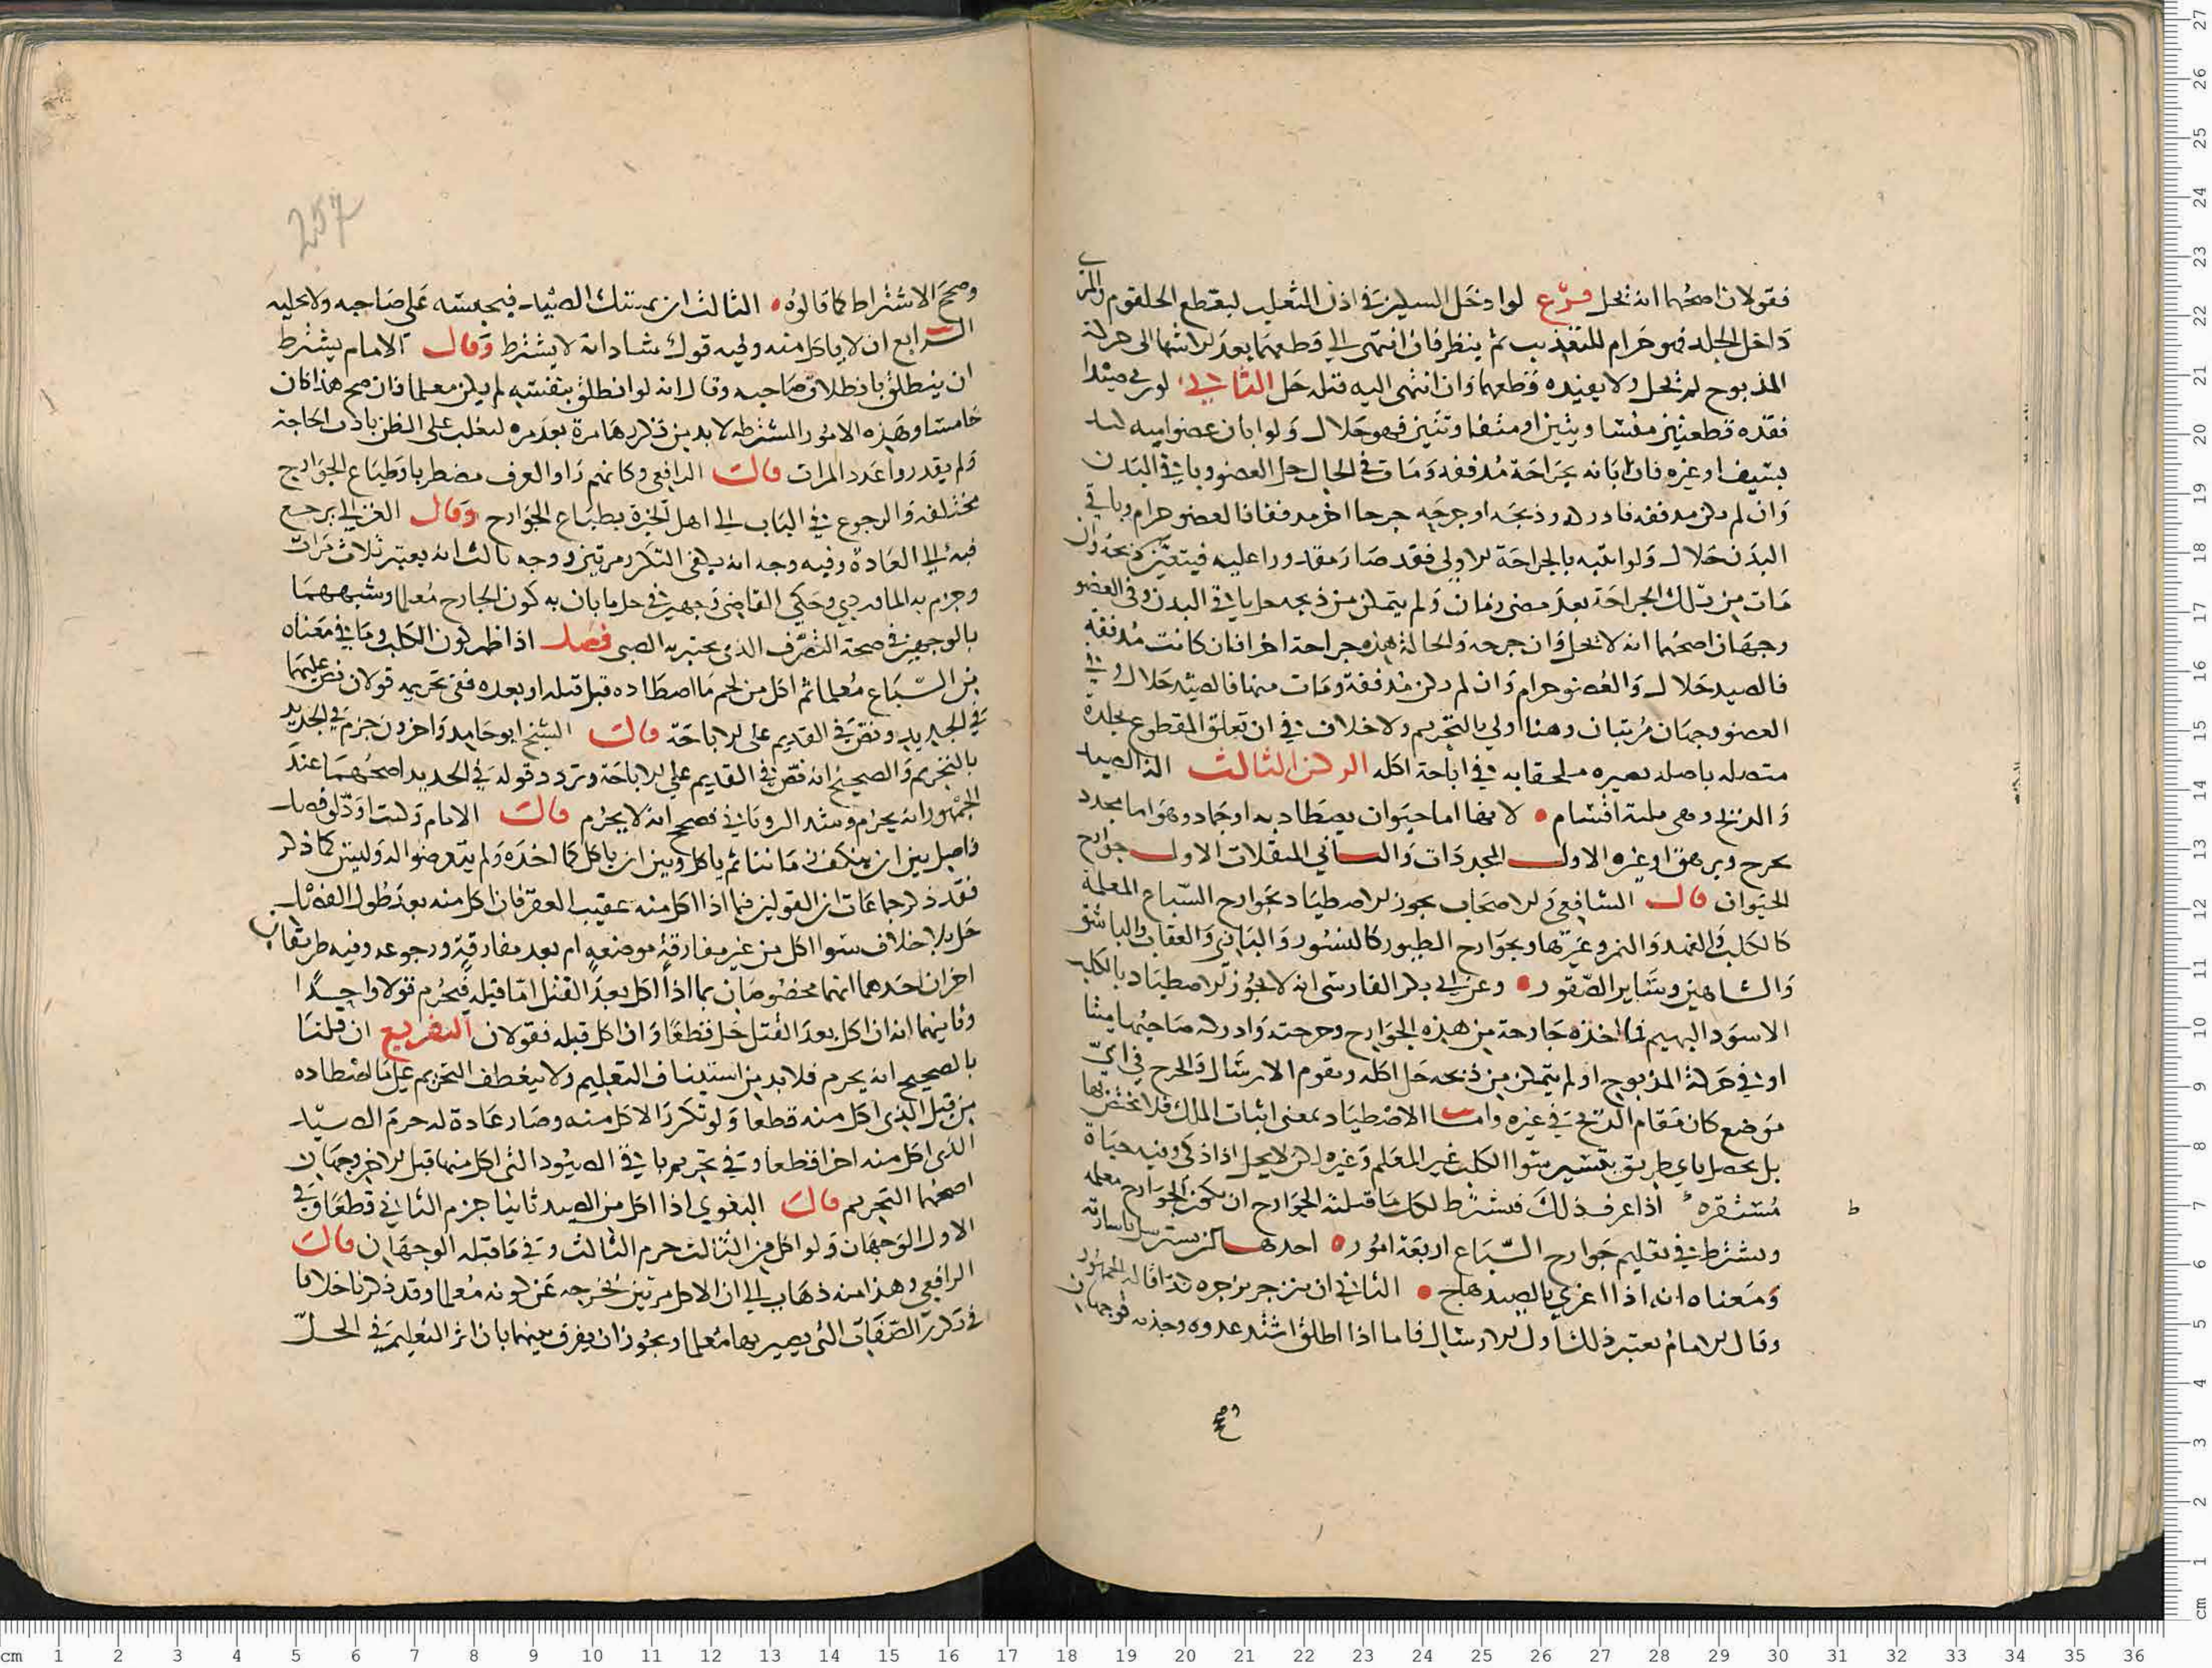 فقولان اصحهما انه يحل فرع لو ادخل السكين في اذن الثعلب ليقطع الحلقوم والمرى
داخل الجلد فهو حرام للتعذيب ثم ينظر فان انتهى الى قطعهما بعد الانتها الى حركة
المذبوح لم يحل ولا يفيده قطعهما وان انتهى اليه قبله حل الثاني لو رمى صيدا
فقده قطعتين متساويتين او متفاوتتين فهو حلال ولو ابان عضوا منه
بسيف او غيره فان ابانه بجراحة مذففة ومات في الحال حل العضو وباقي البدن
وان لم تكن مذففة فادركه وذبحه او جرحه جرحا اخر مذففا فالعضو حرام وباقي
البدن حلال ولو اثبته بالجراحة الاولى فقد صار مقدورا عليه فيتعين ذبحه وان
مات من تلك الجراحة بعد مضي زمان ولم يتمكن من ذبحه حل باقي البدن وفي العضو
وجهان اصحهما انه لا يحل وان جرحه والحالة هذه جراحة اخرى فان كانت مذففة
فالصيد حلال والعضو حرام وان لم تكن مذففة ومات منهما فالصيد حلال وفي
العضو وجهان مرتبان وهنا اولى بالتحريم ولا خلاف في ان تعلق المقطوع بجلدة
متصله باصله يصيره ملحقا به في اباحة اكله الركن الثالث الة الصيد
والذبح وهي ثلثة اقسام لانها اما حيوان يصطاد به او جماد وهو اما محدد
يجرح ويرهق او غيره الاول المحددات والثاني المثقلات الاول جوارح
الحيوان قال الشافعي والاصحاب يجوز الاصطياد بجوارح السباع المعلمة
كالكلب والفهد والنمر وغيرها وبجوارح الطيور كالنسور والبازي والعقاب والباشق
والشاهين وساير الصقور وعن ابي بكر الفارسي انه لا يجوز الاصطياد بالكلب
الاسود البهيم فما اخذه جارحة من هذه الجوارح وجرحته وادركه صاحبها ميتا
او في حركة المذبوح او لم يتمكن من ذبحه حل اكله ويقوم الارسال والجرح في اي
موضع كان مقام الذبح في غيره واما الاصطياد بمعنى اثبات الملك فلا يختص بها
بل يحصل باي طريق تيسر سوا الكلب غير المعلم وغيره لكن لا يحل الا اذا ذكى وفيه حياة
مستقرة اذا عرف ذلك فيشترط لحل ما قتلته الجوارح ان تكون الجوارح معلمه
ويشترط في تعليم جوارح السباع اربعة امور احدها
ومعناه انه اذا اغري بالصيد هاج الثاني ان ينزجر بزجره كذا قاله الجمهور
وقال الامام يعتبر ذلك اول الارسال فاما اذا اطلق واشتد عدوه فوجهان
وصحح الاشتراط كما قالوه الثالث ان يمسك الصيد فيحبسه على صاحبه ولا يخليه
الرابع ان لا ياكل منه وفيه قول شاذ انه لا يشترط وقال الامام يشترط
ان ينطلق باطلاق صاحبه وقال انه لو انطلق بنفسه لم يكن معلما فان صح هذا كان
خامسا وهذه الامور المشترطه لا بد من تكررها مرة بعد مره ليغلب على الظن تادب الحاجة
ولم يقدروا عدد المرات قال الرافعي وكانهم راوا العرف مضطربا وطباع الجوارح
مختلفه والرجوع في الباب الى اهل الخبرة بطباع الجوارح وقال الغزالي يرجع
فيه الى العادة وفيه وجه انه يكفي التكرر مرتين ووجه ثالث انه يعتبر ثلاث مرات
وجزم به الماوردي وحكى القاضي وجهين في حل ما بان به كون الجارح معلما وشبههما
بالوجهين في صحة التصرف الذي يختبر به الصبي فصل اذا ظهر كون الكلب وما في معناه
من السباع معلما ثم اكل من لحم ما اصطاده قبل قتله او بعده ففي تحريمه قولان نص عليهما
في الجديد ونص في القديم على الاباحة قال الشيخ ابو حامد واخرون جزم في الجديد
بالتحريم والصحيح انه نص في القديم على الاباحة وتردد قوله في الجديد اصحهما عند
الجمهور انه يحرم وشذ الروياني فصحح انه لا يحرم قال الامام وددت لو فصل
فاصل بين ان ينكف زمانا ثم ياكل وبين ان ياكل كما اخذه ولم يتعرضوا له وليس كما ذكر
فقد ذكر جماعات ان القولين فيما اذا اكل منه عقيب العقر فان اكل منه بعد طول الفصل
حل بلا خلاف سوا اكل من غير مفارقة موضعه ام بعد مفارقته ورجوعه وفيه طريقان
اخران احدهما انهما مخصوصان بما اذا اكل بعد القتل اما قبله فيحرم قولا واحدا
وثانيهما انه ان اكل بعد القتل حل قطعا وان اكل قبله فقولان التفريع ان قلنا
بالصحيح انه يحرم فلا بد من استيناف التعليم ولا ينعطف التحريم على ما اصطاده
من قبل الذي اكل منه قطعا ولو تكرر الاكل منه وصار عادة له حرم الصيد
الذي اكل منه اخرا قطعا وفي تحريم باقي الصيود التي اكل منها قبل الاخر وجهان
اصحهما التحريم قال البغوي اذا اكل من الصيد ثانيا حرم الثاني قطعا وفي
الاول الوجهان ولو اكل من الثالث حرم الثالث وفي ما قبله الوجهان قال
الرافعي وهذا منه ذهاب الى ان الاكل مرتين يخرجه عن كونه معلما وقد ذكرنا خلافا
في تكرر الصفات التي يصير بها معلما ويجوز ان يفرق بينهما بان اثر التعليم في الحل